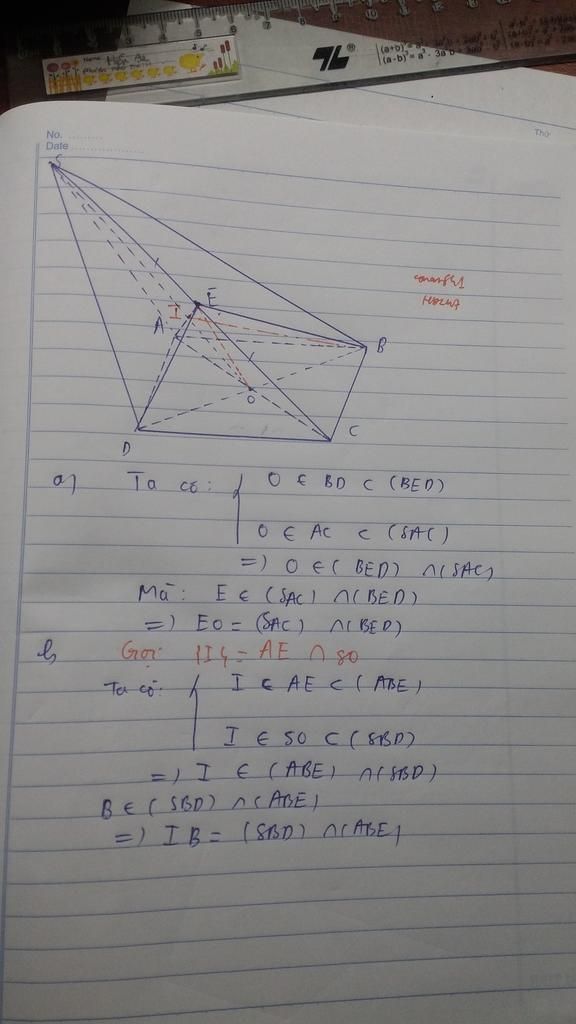 (a+b)³ = a³
(a-b)³ = a³ 3a²b
No.
Date
Thứ
S
I
E
A
B
O
D
C
a) Ta có: { O ∈ BD ⊂ (BED)
O ∈ AC ⊂ (SAC)
=) O ∈ (BED) ∩ (SAC)
Mà: E ∈ (SAC) ∩ (BED)
=) EO = (SAC) ∩ (BED)
b, Gọi {I} = AE ∩ SO
Ta có: { I ∈ AE ⊂ (ABE)
I ∈ SO ⊂ (SBD)
=) I ∈ (ABE) ∩ (SBD)
B ∈ (SBD) ∩ (ABE)
=) IB = (SBD) ∩ (ABE)